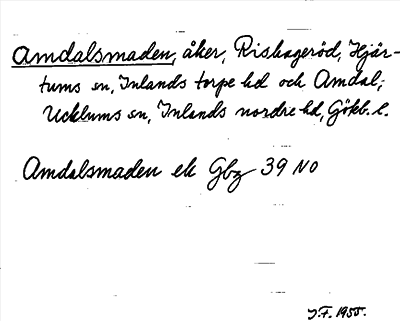 Amdalsmaden, åker, Rishageröd, Hjär-
tums sn, Inlands torpe hd och Amdal,
Ucklums sn, Inlands nordre hd, Gökb. l.
Amdalsmaden ek Gbg 39 NO
J.F. 1955.